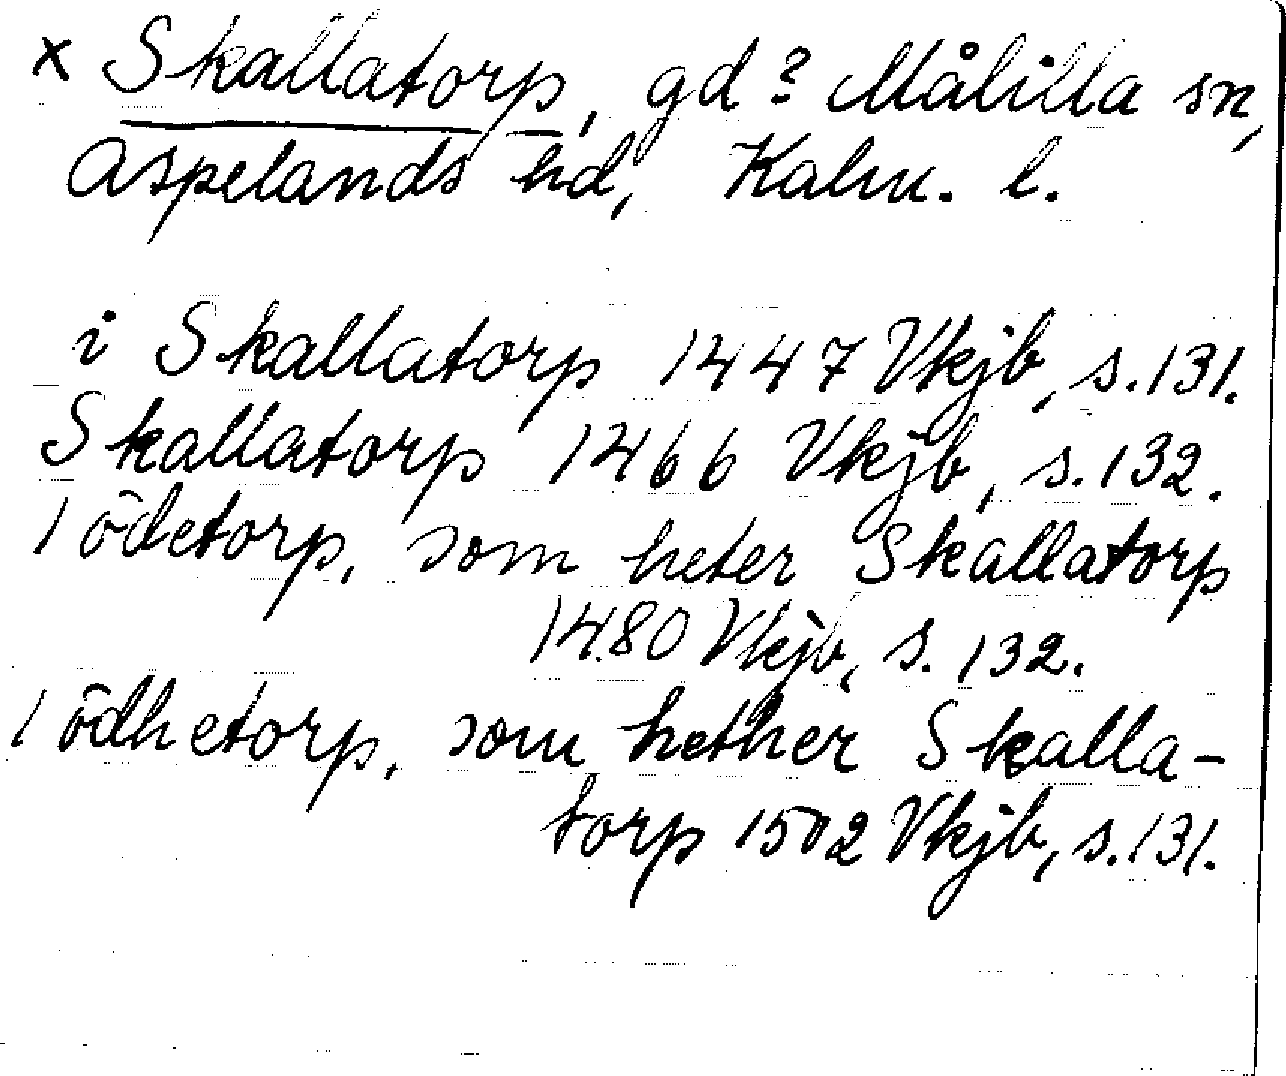 x Skallatorp, gd? Målilla sn,
Aspelands hd, Kalm. l.
i Skallatorp 1447 Vkjb, s. 131.
Skallatorp 1466 Vkjb, s. 132.
1 ödetorp, som heter Skallatorp
1480 Vkjb, s. 132.
1 ödhetorp, som hether Skalla-
torp 1502 Vkjb, s. 131.